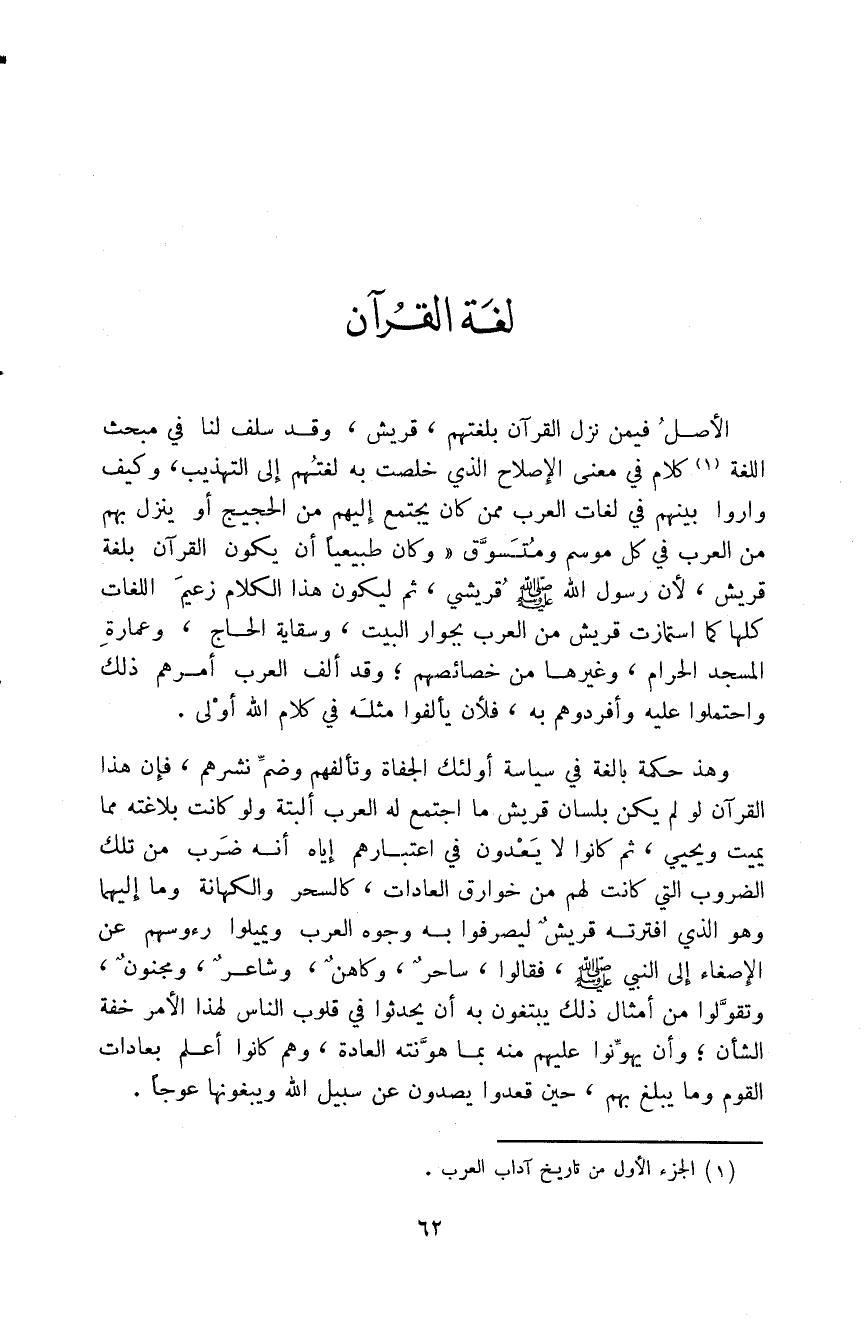 لغَة القُرآن
الأصلُ فيمن نزل القرآن بلغتهم ، قريش ، وقد سلف لنا في مبحث
اللغة (١) كلام في معنى الإصلاح الذي خلصت به لغتُهم إلى التهذيب، وكيف
واروا بينهم في لغات العرب ممن كان يجتمع إليهم من الحجيج أو ينزل بهم
من العرب في كل موسم ومُتَسوَّق « وكان طبيعياً أن يكون القرآن بلغة
قريش ، لأن رسول الله ﷺ قُريشي ، ثم ليكون هذا الكلام زعيمَ اللغات
كلها كما استمازت قريش من العرب بجوار البيت ، وسقاية الحاج ، وعمارةِ
المسجد الحرام ، وغيرها من خصائصهم ؛ وقد ألف العرب أمرهم ذلك
واحتملوا عليه وأفردوهم به ، فلأن يألفوا مثلَه في كلام الله أوْلى .
وهذ حكمة بالغة في سياسة أولئك الجفاة وتألفهم وضمِّ نشرهم ، فإن هذا
القرآن لو لم يكن بلسان قريش ما اجتمع له العرب ألبتة ولو كانت بلاغته مما
يميت ويحيي ، ثم كانوا لا يَعْدون في اعتبارهم إياه أنه ضَرب من تلك
الضروب التي كانت لهم من خوارق العادات ، كالسحر والكهانة وما إليها
وهو الذي افترته قريشٌ ليصرفوا به وجوه العرب ويميلوا رءوسهم عن
الإصغاء إلى النبي ﷺ ، فقالوا ، ساحرٌ ، وكاهنٌ ، وشاعرٌ ، ومجنونٌ ،
وتقوَّلوا من أمثال ذلك يبتغون به أن يحدثوا في قلوب الناس لهذا الأمر خفة
الشأن ؛ وأن يهوِّنوا عليهم منه بما هوَّنته العادة ، وهم كانوا أعلم بعادات
القوم وما يبلغ بهم ، حين قعدوا يصدون عن سبيل الله ويبغونها عوجاً .
(١) الجزء الأول من تاريخ آداب العرب .
٦٢